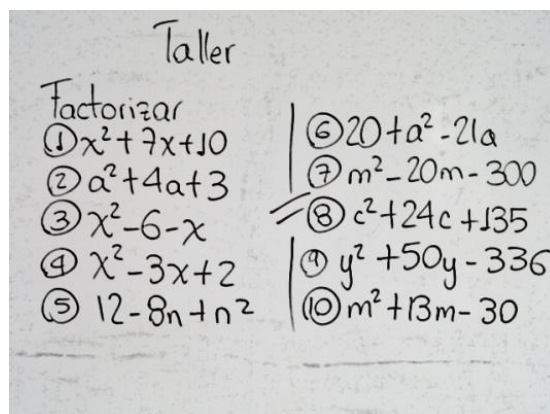 Taller
Factorizar
① x² + 7x + 10
② a² + 4a + 3
③ x² - 6 - x
④ x² - 3x + 2
⑤ 12 - 8n + n²
⑥ 20 + a² - 21a
⑦ m² - 20m - 300
⑧ c² + 24c + 135
⑨ y² + 50y - 336
⑩ m² + 13m - 30